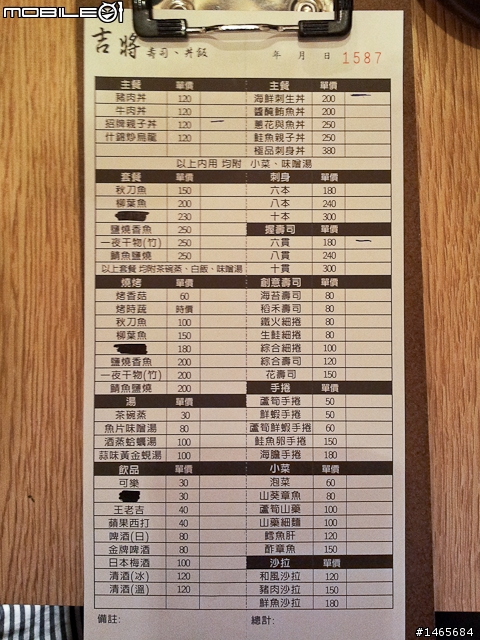 MOBILE01
吉將 壽司、丼飯
年 月 日 1587
主餐 單價
豬肉丼 120
牛肉丼 120
招牌親子丼 120
什錦炒烏龍 120
主餐 單價
海鮮刺生丼 200
醬醃鮪魚丼 200
蔥花與魚丼 250
鮭魚親子丼 250
極品刺身丼 380
以上內用 均附 小菜、味噌湯
套餐 單價
秋刀魚 150
柳葉魚 200
230
鹽燒香魚 250
一夜干物(竹) 250
鯖魚鹽燒 250
以上套餐 均附茶碗蒸、白飯、味噌湯
刺身 單價
六本 180
八本 240
十本 300
握壽司 單價
六貫 180
八貫 240
十貫 300
燒烤 單價
烤香菇 60
烤時蔬 時價
秋刀魚 100
柳葉魚 150
180
鹽燒香魚 200
一夜干物(竹) 200
鯖魚鹽燒 200
創意壽司 單價
海苔壽司 80
稻禾壽司 80
鐵火細捲 80
生鮭細捲 80
綜合細捲 100
綜合壽司 120
花壽司 150
湯 單價
茶碗蒸 30
魚片味噌湯 80
酒蒸蛤蠣湯 100
蒜味黃金蜆湯 100
手捲 單價
蘆筍手捲 50
鮮蝦手捲 50
蘆筍鮮蝦手捲 60
鮭魚卵手捲 150
海膽手捲 180
飲品 單價
可樂 30
30
王老吉 40
蘋果西打 40
啤酒(日) 80
金牌啤酒 80
日本梅酒 100
清酒(冰) 120
清酒(溫) 120
小菜 單價
泡菜 60
山葵章魚 80
蘆筍山藥 100
山藥細麵 100
鱈魚肝 120
酢章魚 150
沙拉 單價
和風沙拉 120
豬肉沙拉 150
鮮魚沙拉 180
備註: 總計:
#1465684